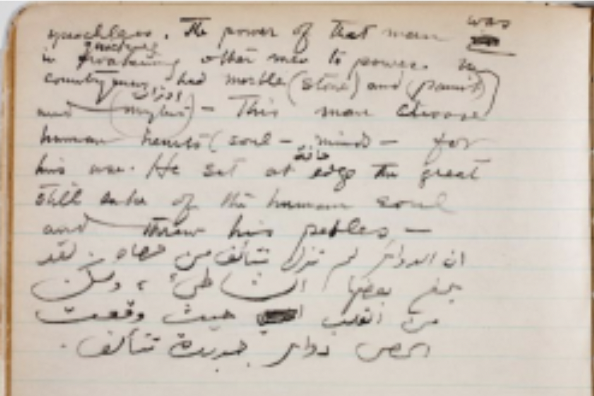 speechless. The power of that man was
in quickening other men to power. My
countrymen had marble (stone) and (paint)
and اوزان — This man choose
human hearts (soul — minds — for
his use. He sat at حافة edge the great
still lake of the human soul
and threw his pebles —
ان الدوائر لم تزل تتألف من حصاه. لقد
بلغ بعضها الشاطئ، ولكن
من القلب حيث وقعت
الحصى دوائر جديدة تتألف.